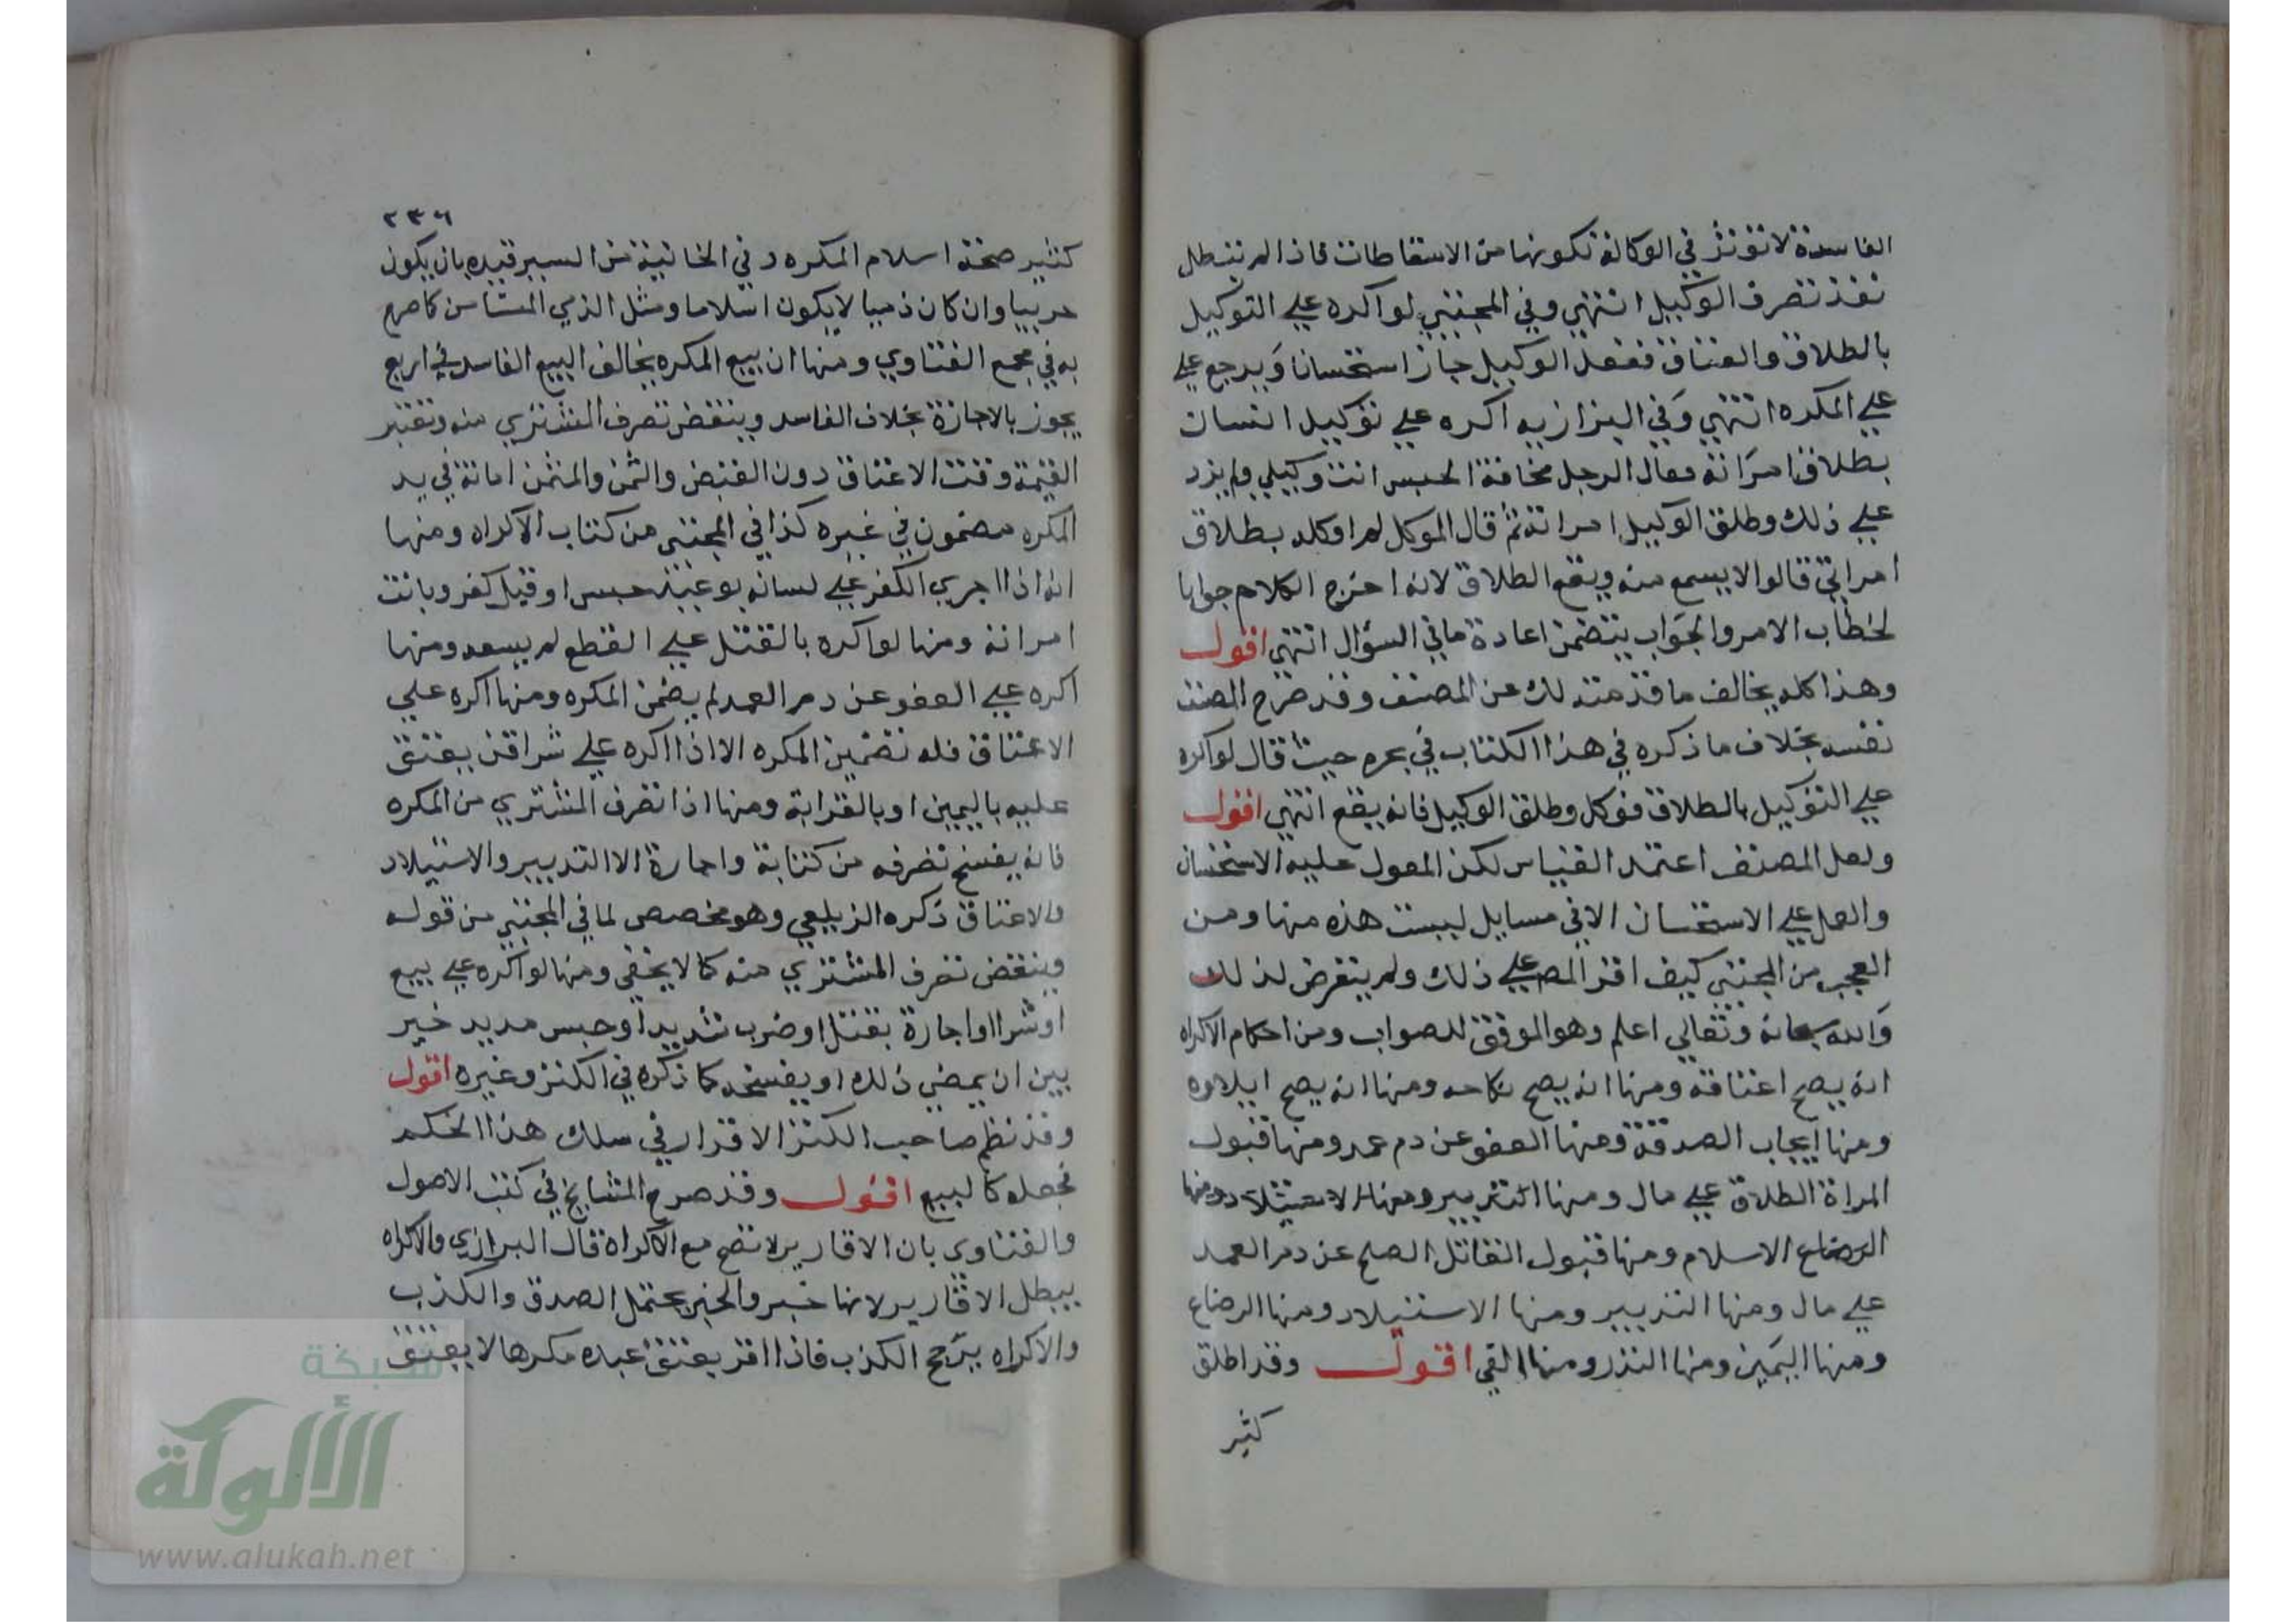 الفاسدة لا تؤثر في الوكالة لكونها من الاسقاطات فاذا لم تبطل
نفذ تصرف الوكيل انتهي وفي المجتبي لو اكره علي التوكيل
بالطلاق والعتاق ففعل الوكيل جاز استحسانا ويرجع علي
علي المكره انتهي وفي البزازيه اكره علي توكيل انسان
بطلاق امراته فقال الرجل مخافة الحبس انت وكيلي ولم يزد
علي ذلك وطلق الوكيل امراته ثم قال الموكل لم اوكله بطلاق
امراتي قالوا لا يسمع منه ويقع الطلاق لانه اخرج الكلام جوابا
لخطاب الامر والجواب يتضمن اعادة ما في السؤال انتهي اقول
وهذا كله يخالف ما قدمته لك عن المصنف وقد صرح المصنف
نفسه بخلاف ما ذكره في هذا الكتاب في بحره حيث قال لو اكره
علي التوكيل بالطلاق فوكل وطلق الوكيل فانه يقع انتهي اقول
ولعل المصنف اعتمد القياس لكن المعول عليه الاستحسان
والعمل علي الاستحسان الا في مسايل ليست هذه منها ومن
العجب من المجتبي كيف اقر المص علي ذلك ولم يتعرض لذلك
والله سبحانه وتعالي اعلم وهو الموفق للصواب ومن احكام الاكراه
انه يصح اعتاقه ومنها انه يصح نكاحه ومنها انه يصح ايلاوه
ومنها ايجاب الصدقة ومنها العفو عن دم عمد ومنها قبول
المراة الطلاق علي مال ومنها التدبير ومنها الاستيلاد ومنها
الرضاع الاسلام ومنها قبول القاتل الصلح عن دم العمد
علي مال ومنها التدبير ومنها الاستيلاد ومنها الرضاع
ومنها اليمين ومنها النذر ومنها الفي اقول وقد اطلق
كثير
٢٣٦
كثير صحة اسلام المكره وفي الخانية من السير قيده بان يكون
حربيا وان كان ذميا لا يكون اسلاما ومثل الذمي المستامن كما صرح
به في مجمع الفتاوي ومنها ان بيع المكره يخالف البيع الفاسد في اربع
يجوز بالاجازة بخلاف الفاسد وينقض تصرف المشتري منه وتعتبر
القيمة وقت الاعتاق دون القبض والثمن والمثمن امانة في يد
المكره مضمون في غيره كذا في المجتبي من كتاب الاكراه ومنها
انه اذا اجري الكفر علي لسانه بوعيد حبس او قيل كفر وبانت
امراته ومنها لو اكره بالقتل علي القطع لم يسعه ومنها
اكره علي العفو عن دم العمد لم يضمن المكره ومنها اكره علي
الاعتاق فله تضمين المكره الا اذا اكره علي شرا من يعتق
عليه باليمين او بالقرابة ومنها اذا تصرف المشتري من المكره
فانه يفسخ تصرفه من كتابة واجارة الا التدبير والاستيلاد
والاعتاق ذكره الزيلعي وهو مخصص لما في المجتبي من قوله
وينقض تصرف المشتري منه كما لا يخفي ومنها لو اكره علي بيع
او شرا او اجارة بقتل او ضرب شديد او حبس مديد خير
بين ان يمضي ذلك او يفسخه كما ذكره في الكنز وغيره اقول
وقد نظم صاحب الكنز الاقرار في سلك هذا الحكم
فجعله كالبيع اقول وقد صرح المشايخ في كتب الاصول
والفتاوي بان الاقارير لا تصح مع الاكراه قال البزازي والاكراه
يبطل الاقارير لانها خبر والخبر يحتمل الصدق والكذب
والاكراه يرجح الكذب فاذا اقر بعتق عبده مكرها لا يعتق
شبكة
الألوكة
www.alukah.net